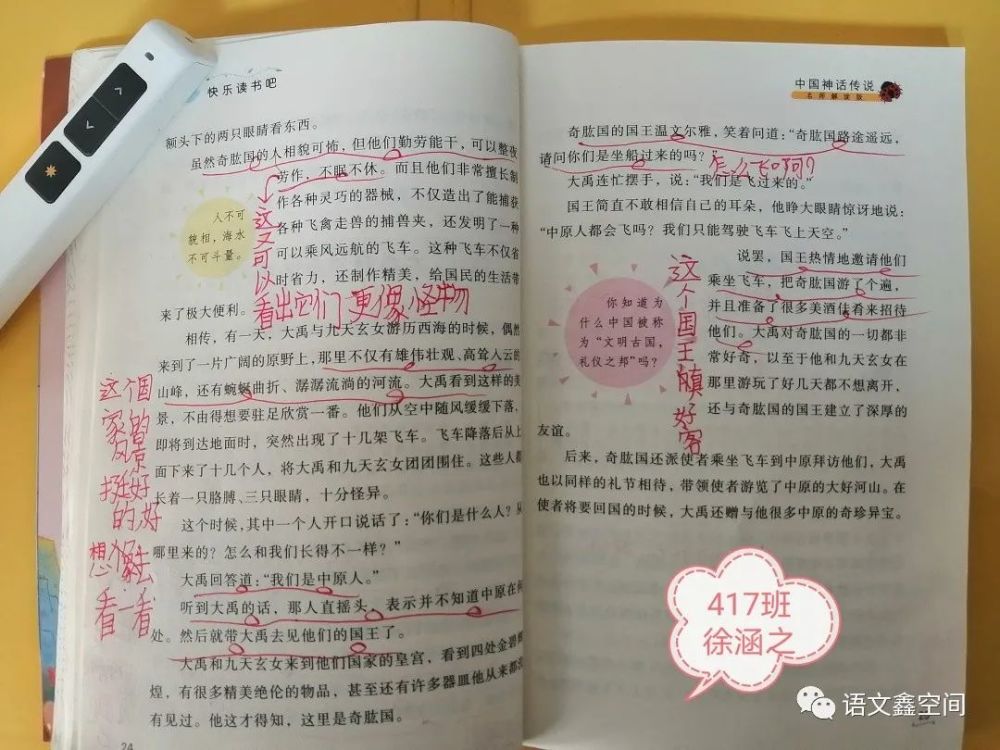 快乐读书吧
额头下的两只眼睛看东西。
虽然奇肱国的人相貌可怖，但他们勤劳能干，可以整夜
劳作，不眠不休。而且他们非常擅长制
作各种灵巧的器械，不仅造出了能捕获
各种飞禽走兽的捕兽夹，还发明了一种
可以乘风远航的飞车。这种飞车不仅省
时省力，还制作精美，给国民的生活带
来了极大便利。
人不可
貌相，海水
不可斗量。
这又可以
看出它们更像怪物
相传，有一天，大禹与九天玄女游历西海的时候，偶然
来到了一片广阔的原野上，那里不仅有雄伟壮观、高耸入云的
山峰，还有蜿蜒曲折、潺潺流淌的河流。大禹看到这样的美
景，不由得想要驻足欣赏一番。他们从空中随风缓缓下落，
即将到达地面时，突然出现了十几架飞车。飞车降落后从上
面下来了十几个人，将大禹和九天玄女团团围住。这些人都
长着一只胳膊、三只眼睛，十分怪异。
这个时候，其中一个人开口说话了：“你们是什么人？从
哪里来的？怎么和我们长得不一样？”
大禹回答道：“我们是中原人。”
听到大禹的话，那人直摇头，表示并不知道中原在何
处。然后就带大禹去见他们的国王了。
大禹和九天玄女来到他们国家的皇宫，看到四处金碧辉
煌，有很多精美绝伦的物品，甚至还有许多器皿他从来都没
有见过。他这才得知，这里是奇肱国。
24
这个国
家的
风景
挺好
的，好
想
去
看一看
中国神话传说
名师解读版
奇肱国的国王温文尔雅，笑着问道：“奇肱国路途遥远，
请问你们是坐船过来的吗？”
怎么飞啊？
大禹连忙摆手，说：“我们是飞过来的。”
国王简直不敢相信自己的耳朵，他睁大眼睛惊讶地说：
“中原人都会飞吗？我们只能驾驶飞车飞上天空。”
说罢，国王热情地邀请他们
乘坐飞车，把奇肱国游了个遍，
并且准备了很多美酒佳肴来招待
他们。大禹对奇肱国的一切都非
常好奇，以至于他和九天玄女在
那里游玩了好几天都不想离开，
还与奇肱国的国王建立了深厚的
友谊。
你知道为
什么中国被称
为“文明古国，
礼仪之邦”吗？
这个国王真好客
后来，奇肱国还派使者乘坐飞车到中原拜访他们，大禹
也以同样的礼节相待，带领使者游览了中原的大好河山。在
使者将要回国的时候，大禹还赠与他很多中原的奇珍异宝。
417班
徐涵之
语文鑫空间